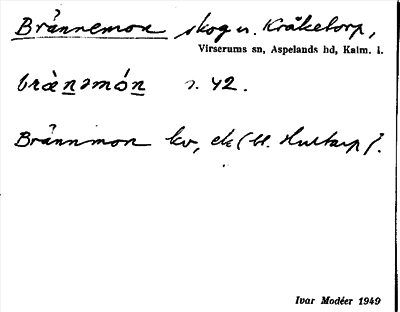 Brännemon skog u. Kråketorp,
Virserums sn, Aspelands hd, Kalm. l.
brànəmón s. 42.
Brännmon kv, ek (bl. Hultarp).
Ivar Modéer 1949